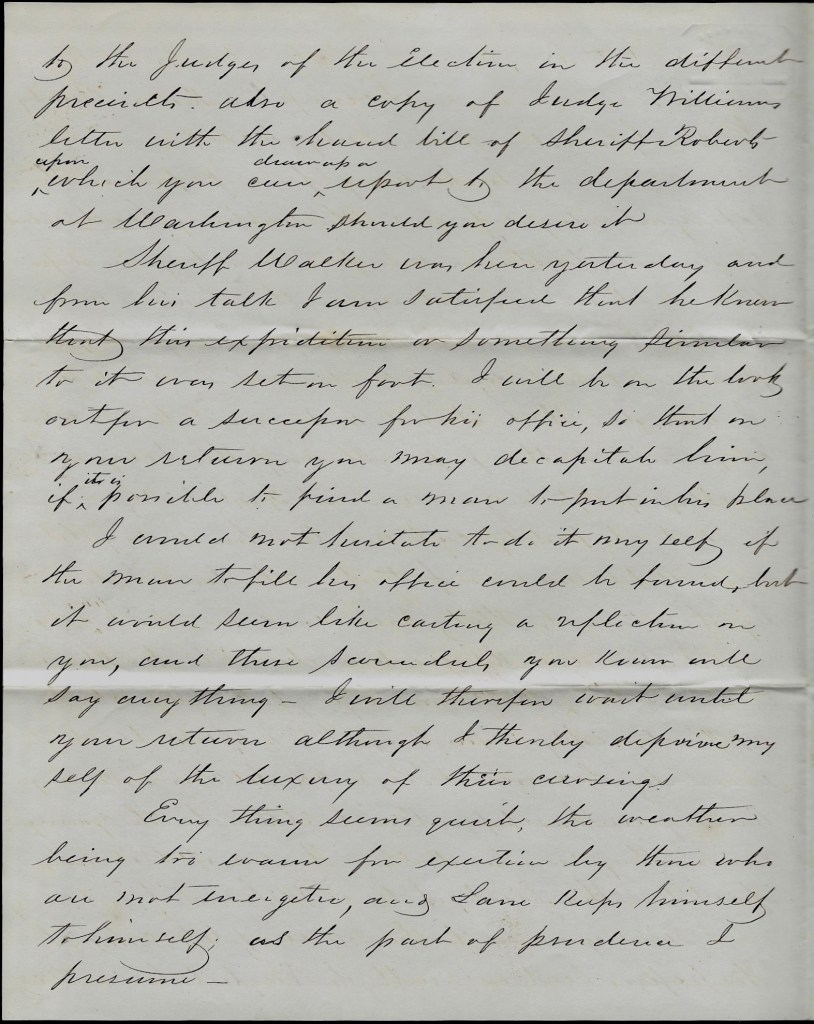 to the Judges of the Election in the different
precincts. also a copy of Judge Williams
letter with the hand bill of Sheriff Roberts
upon draw up a
which you can report to the department
at Washington should you desire it
Sheriff Walker was here yesterday and
from his talk I am satisfied that he knew
that this expidition or something similar
to it was set on foot. I will be on the look
out for a successor for his office, so that on
your return you may decapitate him,
it is
if possible to find a man to put in his place
I would not hesitate to do it my self if
the man to fill his office could be found, but
it would seem like casting a reflection on
you, and these scoundrels, you know will
say anything – I will therefore wait until
your return although I thereby deprive my
self of the luxury of their cursings.
Every thing seems quiet, the weather
being too warm for exertion by those who
are not energetic, and Lane keeps himself
to himself; as the part of prudence I
presume –